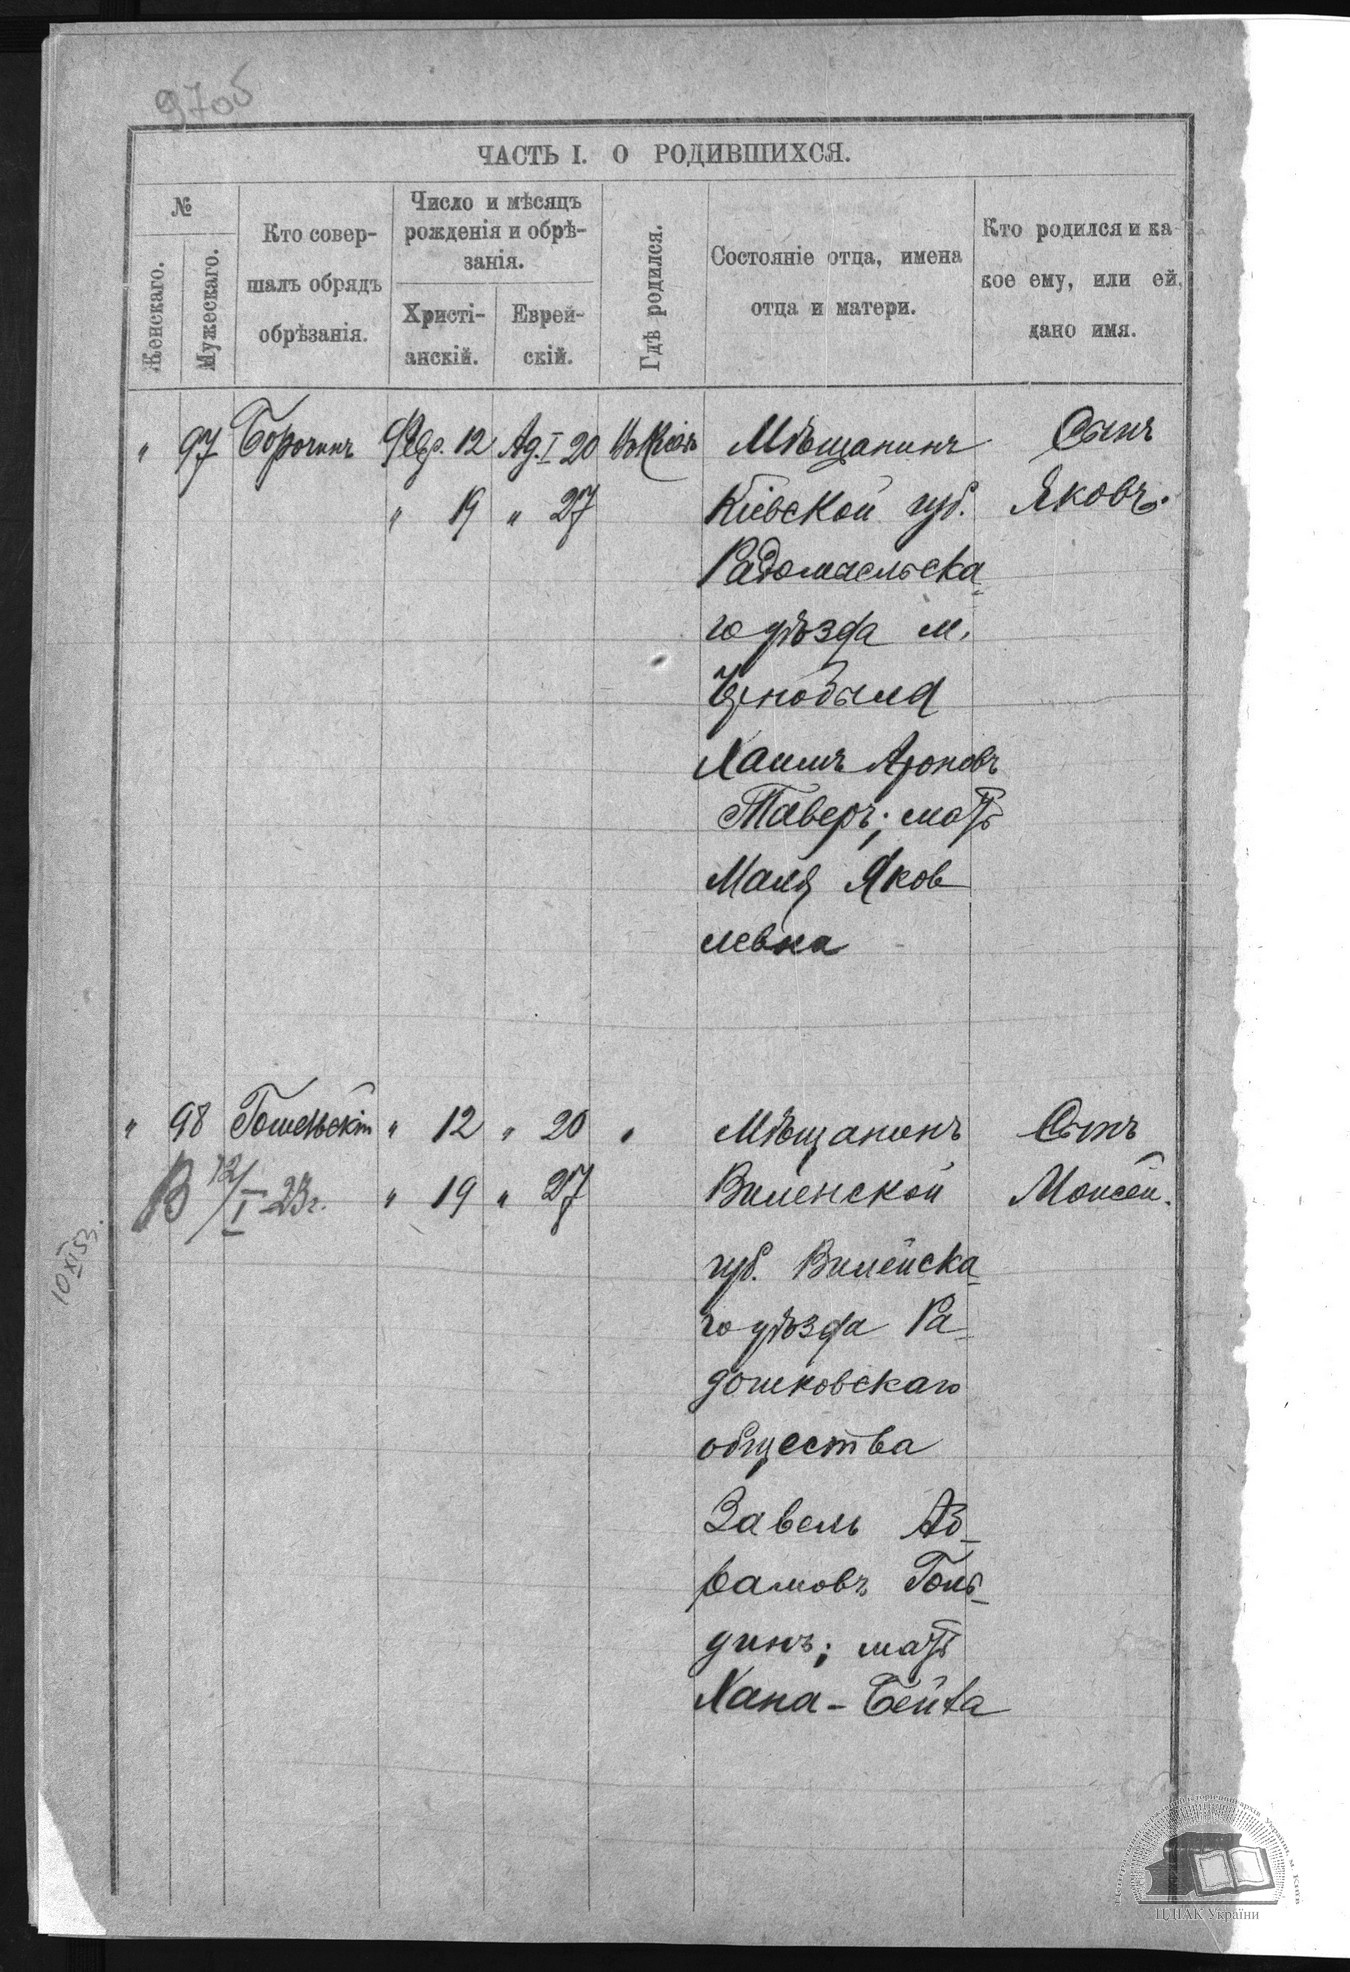 97об
ЧАСТЬ I. О РОДИВШИХСЯ.
№
Женскаго.
Мужескаго.
Кто совер-
шалъ обрядъ
обрѣзанія.
Число и мѣсяцъ
рожденія и обрѣ-
занія.
Христі-
анскій.
Еврей-
скій.
Гдѣ родился.
Состояніе отца, имена
отца и матери.
Кто родился и ка-
кое ему, или ей,
дано имя.
" 97 Борочинъ Февр. 12 Ад. I 20 Въ Кіевѣ Мѣщанинъ Сынъ
" 19 " 27 Кіевской губ. Яковъ.
Радомысльска-
го уѣзда м.
Чернобыля
Хаимъ Ароновъ
Таверъ; мать
Маля Яков
левна
" 98 " 12 " 20 " Мѣщанинъ Сынъ
В 12/I 23г. " 19 " 27 Виленской Моисей.
10 XI 53.
губ. Вилейска-
го уѣзда Ра-
дошковскаго
общества
Завель Аб-
рамовъ Голь-
динъ; мать
Хана-Бейла
ЦДІАК України